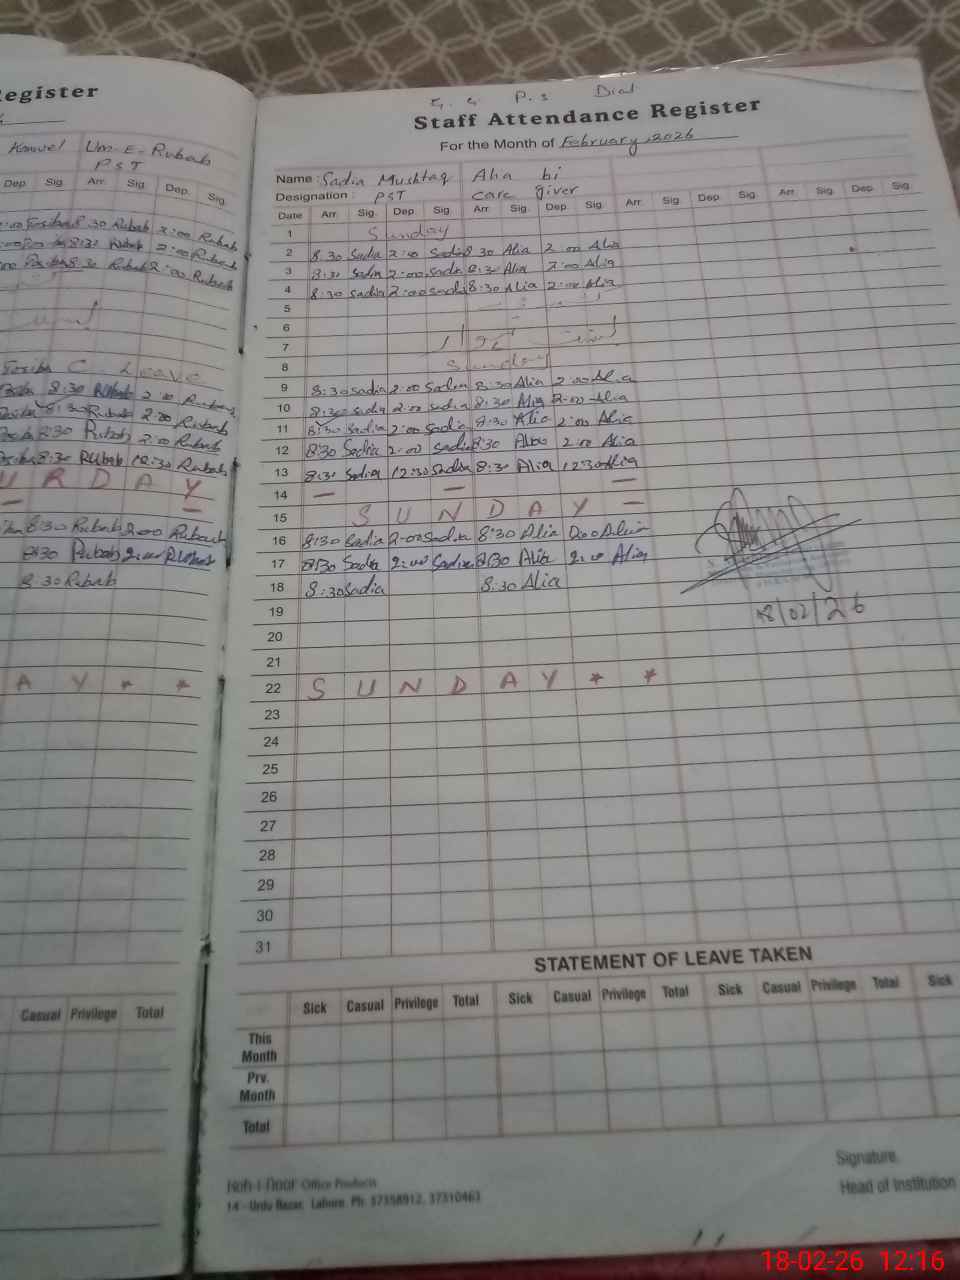 Register
Kanwel Um-E-Rubab
PST
Dep. Sig. Arr. Sig. Dep. Sig.
8:30 Rubab 2:00 Rubab
8:30 Rubab 2:00 Rubab
8:30 Rubab 2:00 Rubab
C. Leave
8:30 Rubab 2:00 Rubab
8:30 Rubab 2:00 Rubab
8:30 Rubab 2:00 Rubab
8:30 Rubab 12:30 Rubab
U R D A Y
8:30 Rubab 2:00 Rubab
8:30 Rubab 2:00 Rubab
8:30 Rubab
A Y * *
Casual Privilege Total
G. G. P.S Dial
Staff Attendance Register
For the Month of February, 2026
Name : Sadia Mushtaq Alia bi
Designation : PST care giver
Date Arr. Sig. Dep. Sig. Arr. Sig. Dep. Sig. Arr. Sig. Dep. Sig. Arr. Sig. Dep. Sig.
1 Sunday
2 8:30 Sadia 2:00 Sadia 8:30 Alia 2:00 Alia
3 8:30 Sadia 2:00 Sadia 8:30 Alia 2:00 Alia
4 8:30 Sadia 2:00 Sadia 8:30 Alia 2:00 Alia
5
6
7
8 Sunday
9 8:30 Sadia 2:00 Sadia 8:30 Alia 2:00 Alia
10 8:30 Sadia 2:00 Sadia 8:30 Alia 2:00 Alia
11 8:30 Sadia 2:00 Sadia 8:30 Alia 2:00 Alia
12 8:30 Sadia 2:00 Sadia 8:30 Alia 2:00 Alia
13 8:30 Sadia 12:30 Sadia 8:30 Alia 12:30 Alia
14 — — —
15 S U N D A Y —
16 8:30 Sadia 2:00 Sadia 8:30 Alia 2:00 Alia
17 8:30 Sadia 2:00 Sadia 8:30 Alia 2:00 Alia
18 8:30 Sadia 8:30 Alia
18/02/26
19
20
21
22 S U N D A Y * *
23
24
25
26
27
28
29
30
31
STATEMENT OF LEAVE TAKEN
Sick Casual Privilege Total Sick Casual Privilege Total Sick Casual Privilege Total Sick
This Month
Prv. Month
Total
Office Products
14 - Urdu Bazar, Lahore. Ph: 37358912, 37310463
Signature.
Head of Institution
18-02-26 12:16